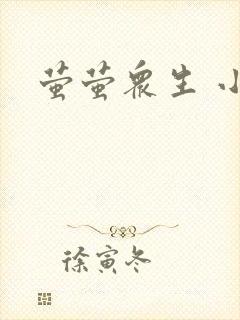 萤萤众生 小
徐寅冬